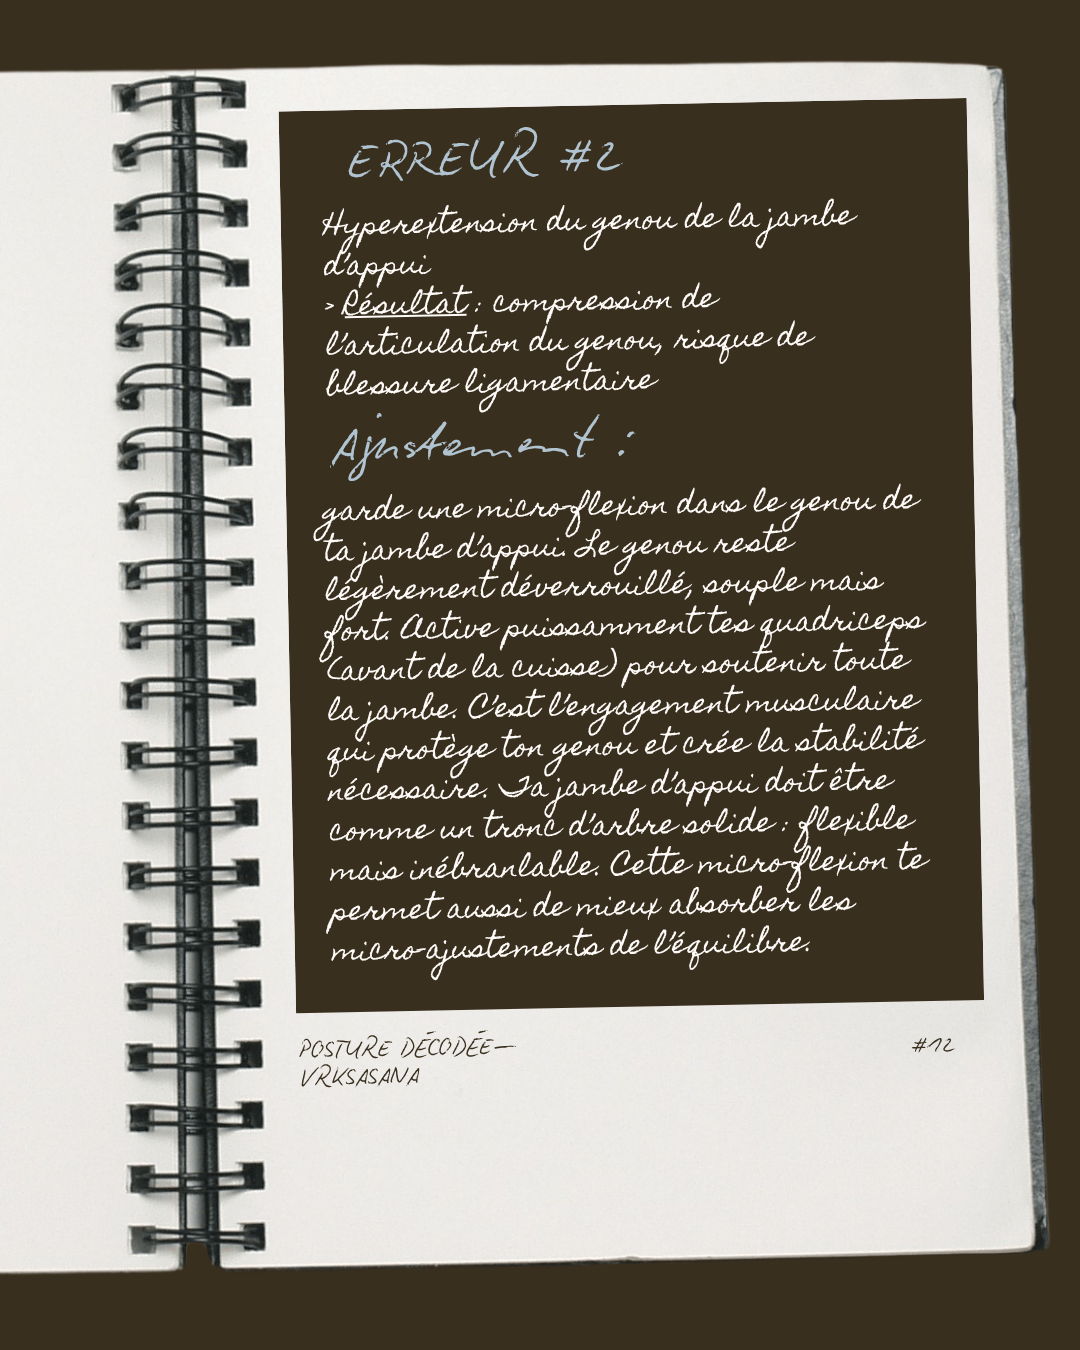 ERREUR #2
Hyperextension du genou de la jambe
d'appui
> Résultat : compression de
l'articulation du genou, risque de
blessure ligamentaire
Ajustement :
garde une micro-flexion dans le genou de
ta jambe d'appui. Le genou reste
légèrement déverrouillé, souple mais
fort. Active puissamment tes quadriceps
(avant de la cuisse) pour soutenir toute
la jambe. C'est l'engagement musculaire
qui protège ton genou et crée la stabilité
nécessaire. Ta jambe d'appui doit être
comme un tronc d'arbre solide : flexible
mais inébranlable. Cette micro-flexion te
permet aussi de mieux absorber les
micro-ajustements de l'équilibre.
POSTURE DÉCODÉE—
VRKSASANA
#12